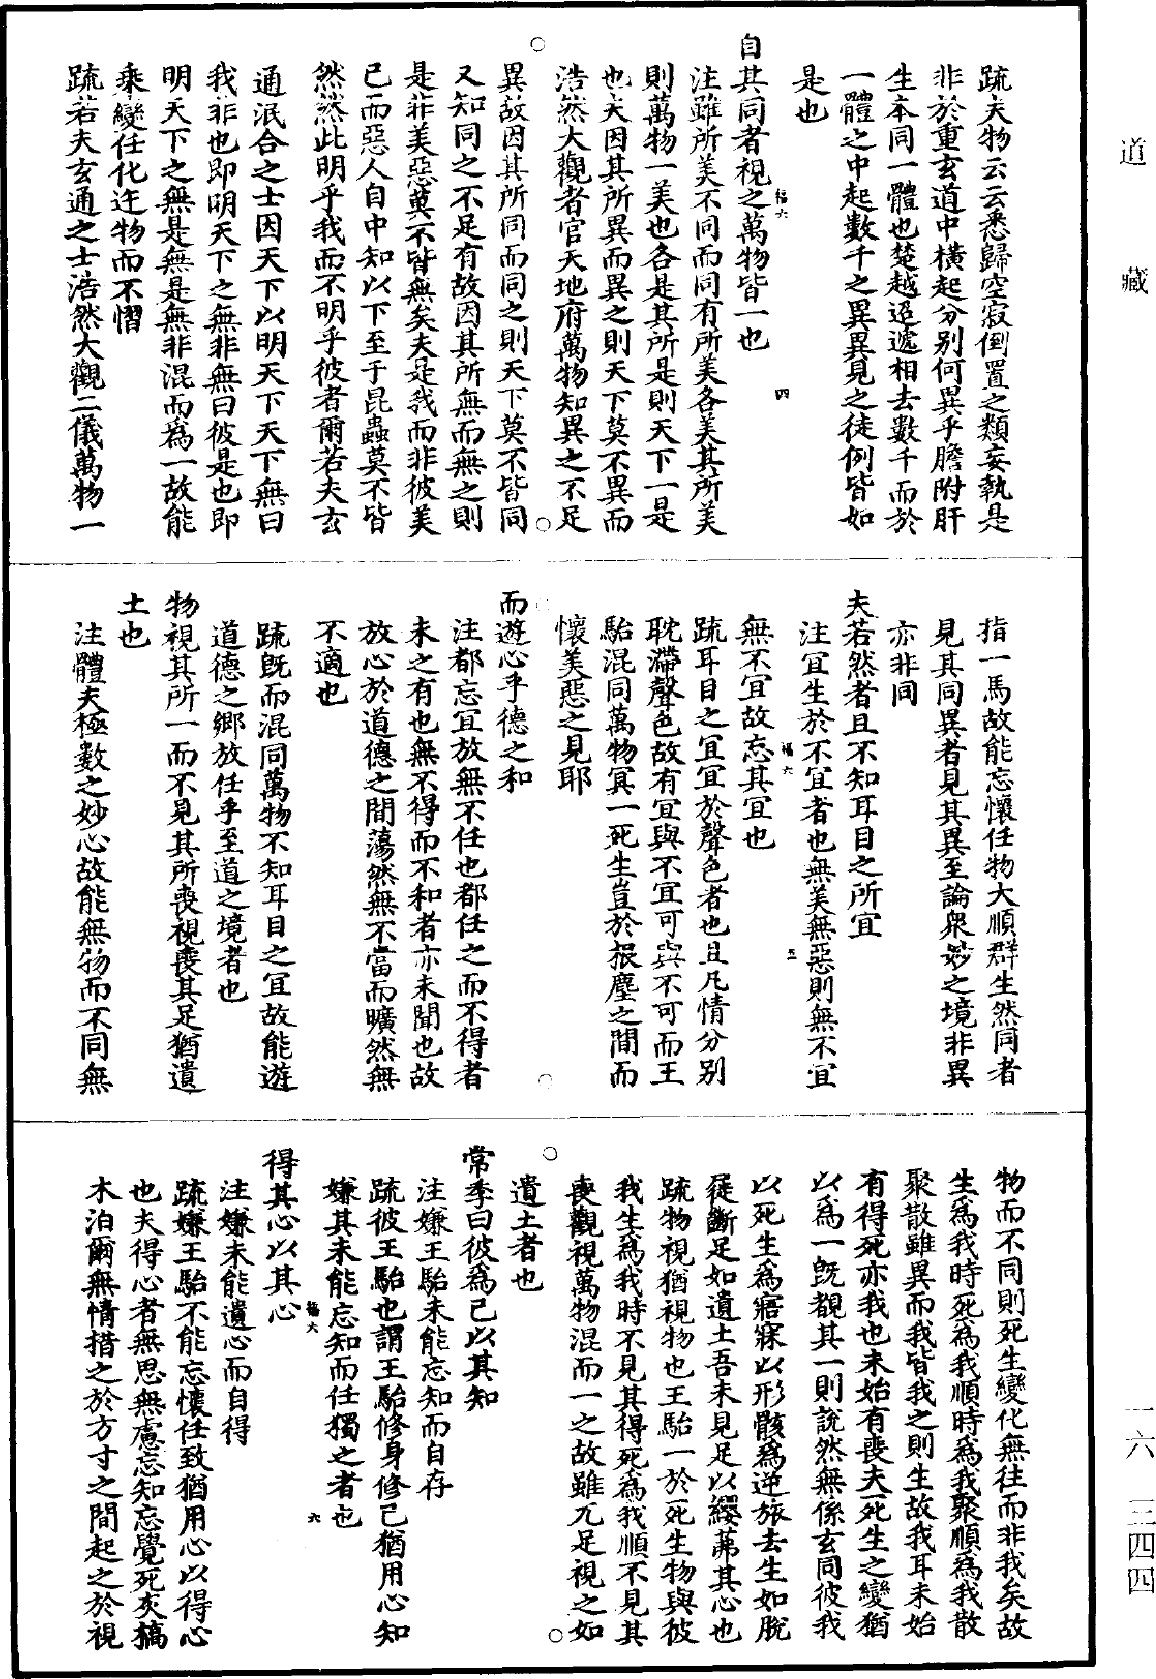 疏夫物云云悉歸空寂倒置之類妄執是
非於重玄道中橫起分別何異乎膽附肝
生本同一體也楚越迢遞相去數千而於
一體之中起數千之異異見之徒例皆如
是也
自其同者視之萬物皆一也
注雖所美不同而同有所美各美其所美
則萬物一美也各是其所是則天下一是
也夫因其所異而異之則天下莫不異而
浩然大觀者官天地府萬物知異之不足
異故因其所同而同之則天下莫不皆同
又知同之不足有故因其所無而無之則
是非美惡莫不皆無矣夫是我而非彼美
己而惡人自中知以下至于昆蟲莫不皆
然然此明乎我而不明乎彼者爾若夫玄
通泯合之士因天下以明天下天下無曰
我非也即明天下之無非無曰彼是也即
明天下之無是無是無非混而為一故能
乘變任化迕物而不慴
疏若夫玄通之士浩然大觀二儀萬物一
指一馬故能忘懷任物大順群生然同者
見其同異者見其異至論衆妙之境非異
亦非同
夫若然者且不知耳目之所宜
注宜生於不宜者也無美無惡則無不宜
無不宜故忘其宜也
疏耳目之宜宜於聲色者也且凡情分別
耽滯聲色故有宜與不宜可與不可而王
駘混同萬物冥一死生豈於根塵之間而
懷美惡之見耶
而遊心乎德之和
注都忘宜放無不任也都任之而不得者
未之有也無不得而不和者亦未聞也故
放心於道德之間蕩然無不當而曠然無
不適也
疏既而混同萬物不知耳目之宜故能遊
道德之鄉放任乎至道之境者也
物視其所一而不見其所喪視喪其足猶遺
土也
注體夫極數之妙心故能無物而不同無
物而不同則死生變化無往而非我矣故
生為我時死為我順時為我聚順為我散
聚散雖異而我皆我之則生故我耳未始
有得死亦我也未始有喪夫死生之變猶
以為一既覩其一則說然無係玄同彼我
以死生為寤寐以形骸為逆旅去生如脫
屣斷足如遺土吾未見足以纓茀其心也
疏物視猶視物也王駘一於死生物與彼
我生為我時不見其得死為我順不見其
喪觀視萬物混而一之故雖兀足視之如
遺土者也
常季曰彼為己以其知
注嫌王駘未能忘知而自存
疏彼王駘也謂王駘修身修己猶用心知
嫌其未能忘知而任獨之者也
得其心以其心
注嫌未能遺心而自得
疏嫌王駘不能忘懷任致猶用心以得心
也夫得心者無思無慮忘知忘覺死灰槁
木泊爾無情措之於方寸之間起之於視
福六
四
福六
五
福六
六
道藏
一六 三四四